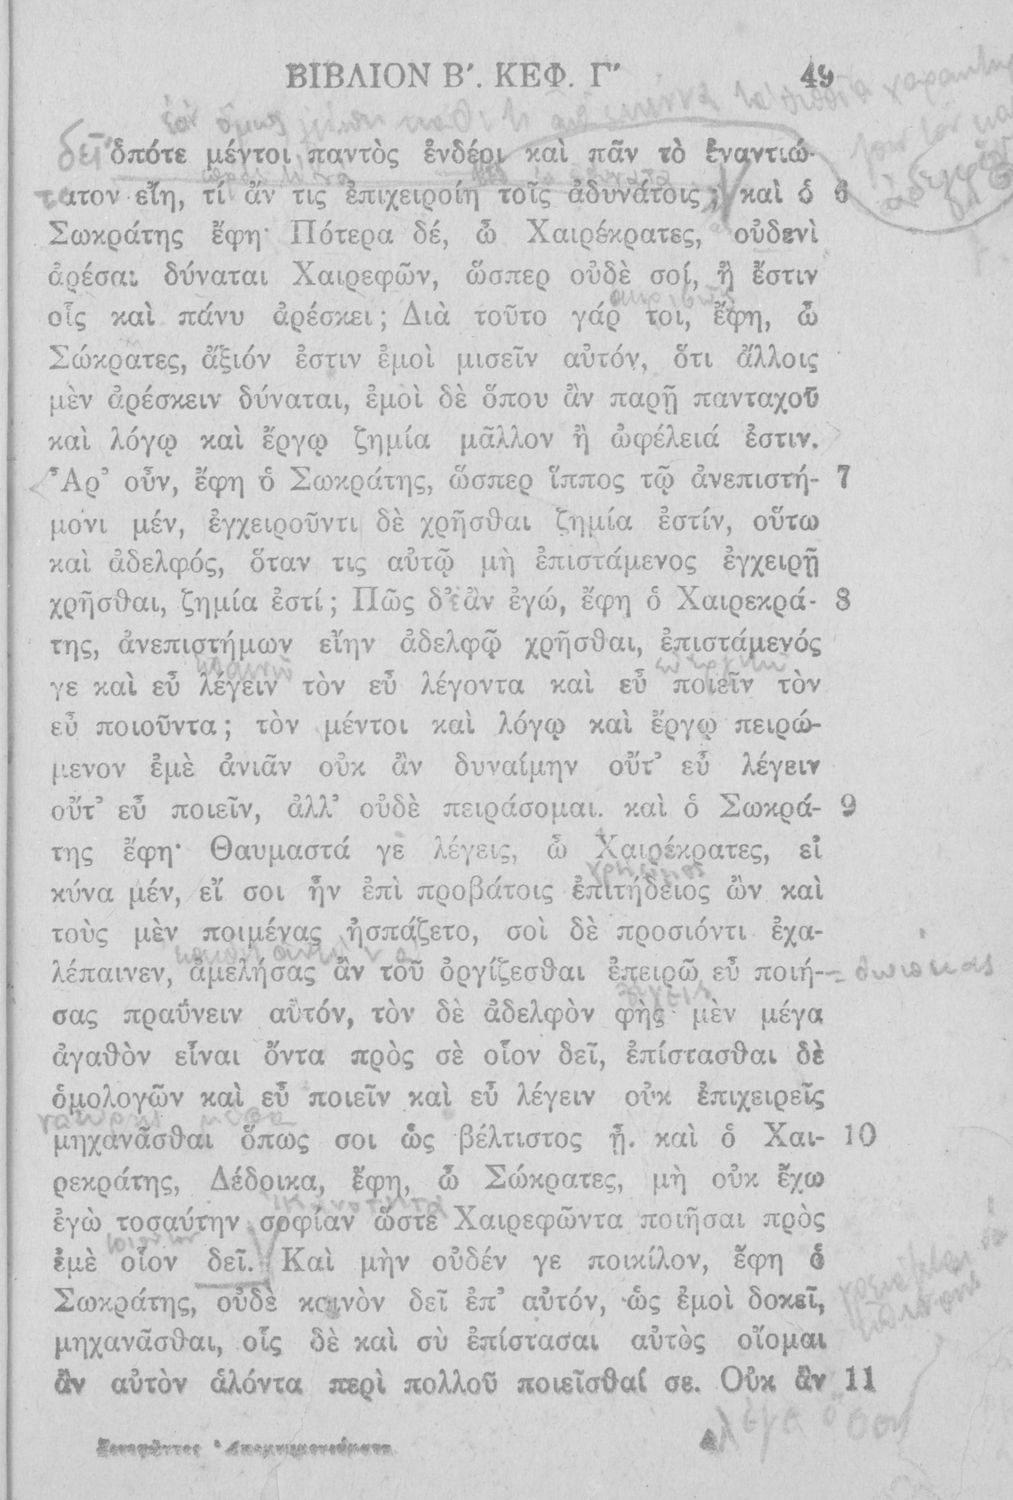 ΒΙΒΛΙΟΝ Β΄. ΚΕΦ. Γ΄ 49
δεῖ ὁπότε μέντοι παντὸς ἐνδέοι καὶ πᾶν τὸ ἐναντιώ-
τατον εἴη, τί ἄν τις ἐπιχειροίη τοῖς ἀδυνάτοις; καὶ ὁ 6
Σωκράτης ἔφη· Πότερα δέ, ὦ Χαιρέκρατες, οὐδενὶ
ἀρέσαι δύναται Χαιρεφῶν, ὥσπερ οὐδὲ σοί, ἢ ἔστιν
οἷς καὶ πάνυ ἀρέσκει; Διὰ τοῦτο γάρ τοι, ἔφη, ὦ
Σώκρατες, ἄξιόν ἐστιν ἐμοὶ μισεῖν αὐτόν, ὅτι ἄλλοις
μὲν ἀρέσκειν δύναται, ἐμοὶ δὲ ὅπου ἂν παρῇ πανταχοῦ
καὶ λόγῳ καὶ ἔργῳ ζημία μᾶλλον ἢ ὠφέλειά ἐστιν.
Ἆρ’ οὖν, ἔφη ὁ Σωκράτης, ὥσπερ ἵππος τῷ ἀνεπιστή- 7
μονι μέν, ἐγχειροῦντι δὲ χρῆσθαι ζημία ἐστίν, οὕτω
καὶ ἀδελφός, ὅταν τις αὐτῷ μὴ ἐπιστάμενος ἐγχειρῇ
χρῆσθαι, ζημία ἐστί; Πῶς δ’ ἂν ἐγώ, ἔφη ὁ Χαιρεκρά- 8
της, ἀνεπιστήμων εἴην ἀδελφῷ χρῆσθαι, ἐπιστάμενός
γε καὶ εὖ λέγειν τὸν εὖ λέγοντα καὶ εὖ ποιεῖν τὸν
εὖ ποιοῦντα; τὸν μέντοι καὶ λόγῳ καὶ ἔργῳ πειρώ-
μενον ἐμὲ ἀνιᾶν οὐκ ἂν δυναίμην οὔτ’ εὖ λέγειν
οὔτ’ εὖ ποιεῖν, ἀλλ’ οὐδὲ πειράσομαι. καὶ ὁ Σωκρά- 9
της ἔφη· Θαυμαστά γε λέγεις, ὦ Χαιρέκρατες, εἰ
κύνα μέν, εἴ σοι ἦν ἐπὶ προβάτοις ἐπιτήδειος ὢν καὶ
τοὺς μὲν ποιμένας ἠσπάζετο, σοὶ δὲ προσιόντι ἐχα-
λέπαινεν, ἀμελήσας ἂν τοῦ ὀργίζεσθαι ἐπειρῶ εὖ ποιή-
σας πραΰνειν αὐτόν, τὸν δὲ ἀδελφὸν φῂς μὲν μέγα
ἀγαθὸν εἶναι ὄντα πρὸς σὲ οἷον δεῖ, ἐπίστασθαι δὲ
ὁμολογῶν καὶ εὖ ποιεῖν καὶ εὖ λέγειν οὐκ ἐπιχειρεῖς
μηχανᾶσθαι ὅπως σοι ὡς βέλτιστος ᾖ. καὶ ὁ Χαι- 10
ρεκράτης, Δέδοικα, ἔφη, ὦ Σώκρατες, μὴ οὐκ ἔχω
ἐγὼ τοσαύτην σοφίαν ὥστε Χαιρεφῶντα ποιῆσαι πρὸς
ἐμὲ οἷον δεῖ. Καὶ μὴν οὐδέν γε ποικίλον, ἔφη ὁ
Σωκράτης, οὐδὲ καινὸν δεῖ ἐπ’ αὐτόν, ὡς ἐμοὶ δοκεῖ,
μηχανᾶσθαι, οἷς δὲ καὶ σὺ ἐπίστασαι αὐτὸς οἴομαι
ἂν αὐτὸν ἁλόντα περὶ πολλοῦ ποιεῖσθαί σε. Οὐκ ἂν 11
Ξενοφῶντος Ἀπομνημονεύματα